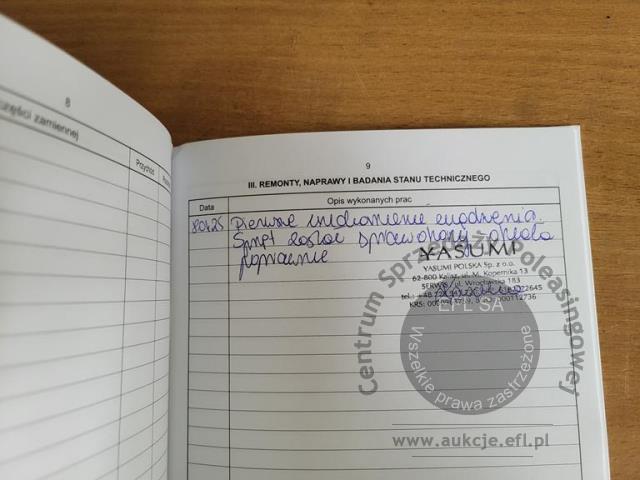 8
części zamiennej
Przychód
9
III. REMONTY, NAPRAWY I BADANIA STANU TECHNICZNEGO
Data
Opis wykonanych prac
Pierwsze uruchomienie urządzenia.
Sprzęt został sprawdzony, działa
poprawnie
YASUMI
YASUMI POLSKA Sp. z o.o.
62-800 Kalisz, ul. M. Kopernika 13
SERWIS: ul. Wrocławska 183
Centrum Sprzedaży Poleasingowej
EFL SA
Wszelkie prawa zastrzeżone
www.aukcje.efl.pl